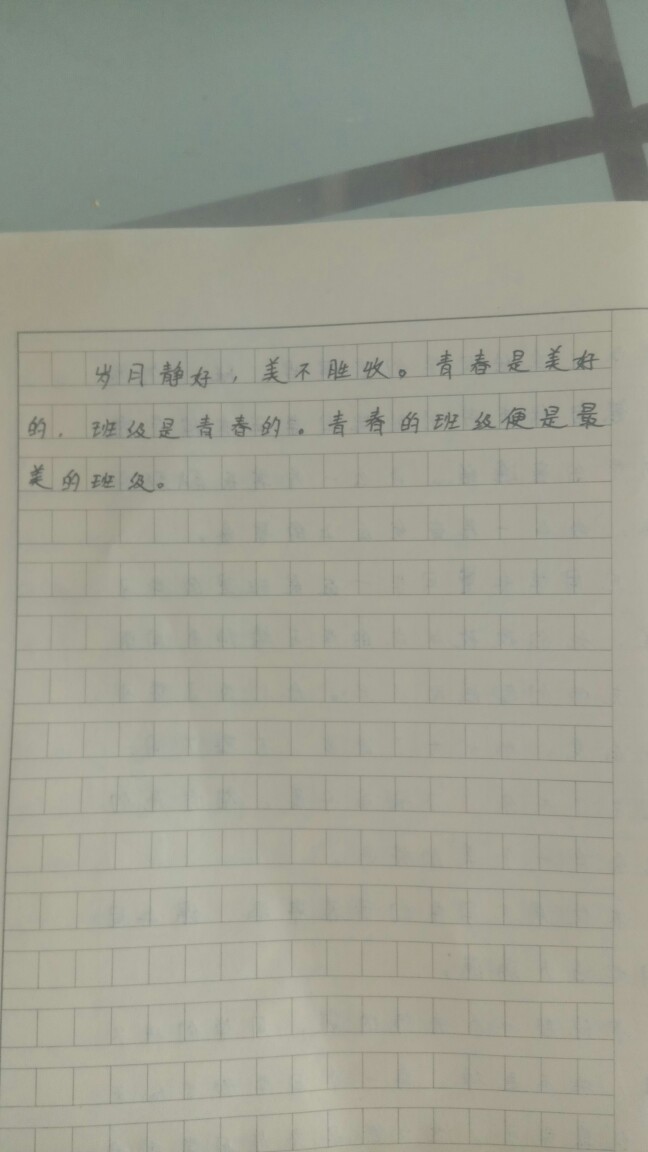 岁月静好，美不胜收。青春是美好
的，班级是青春的。青春的班级便是最
美的班级。